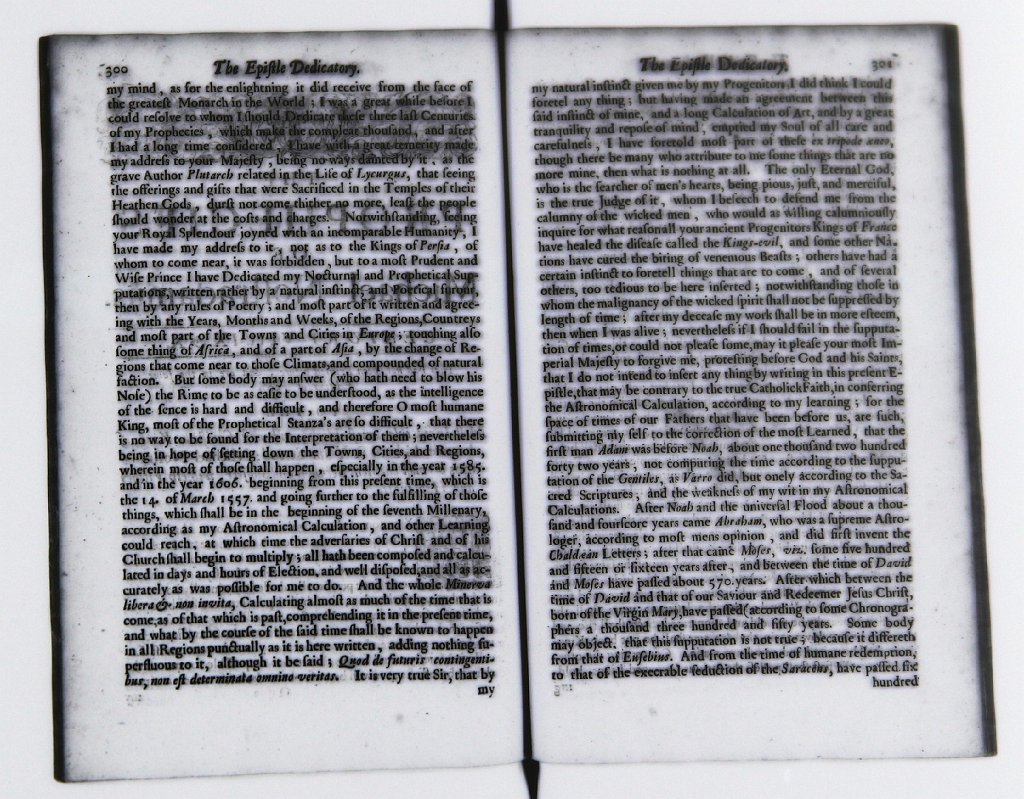 300
The Epiſtle Dedicatory.
my mind, as for the enlightning it did receive from the face of
the greateſt Monarch in the World ; I was a great while before I
could reſolve to whom I ſhould Dedicate theſe three laſt Centuries
of my Prophecies, which make the compleat thouſand, and after
I had a long time conſidered, I have with a great temerity made
my addreſs to your Majeſty, being no ways daunted by it, as the
grave Author Plutarch related in the Life of Lycurgus, that ſeeing
the offerings and gifts that were Sacrificed in the Temples of their
Heathen Gods, durſt not come thither no more, leaſt the people
ſhould wonder at the coſts and charges. Notwithſtanding, ſeeing
your Royal Splendour joyned with an incomparable Humanity, I
have made my addreſs to it, not as to the Kings of Perſia, of
whom to come near, it was forbidden, but to a moſt Prudent and
Wiſe Prince I have Dedicated my Nocturnal and Prophetical Sup-
putations, written rather by a natural inſtinct, and Poetical furour,
then by any rules of Poetry; and moſt part of it written and agree-
ing with the Years, Months and Weeks, of the Regions, Countreys
and moſt part of the Towns and Cities in Europe; touching alſo
ſome thing of Africa, and of a part of Aſia, by the change of Re-
gions that come near to thoſe Climats, and compounded of natural
faction. But ſome body may anſwer (who hath need to blow his
Noſe) the Rime to be as eaſie to be underſtood, as the intelligence
of the ſence is hard and difficult, and therefore O moſt humane
King, moſt of the Prophetical Stanza's are ſo difficult, that there
is no way to be found for the Interpretation of them; nevertheleſs
being in hope of ſetting down the Towns, Cities, and Regions,
wherein moſt of thoſe ſhall happen, eſpecially in the year 1585.
and in the year 1606. beginning from this preſent time, which is
the 14. of March 1557. and going further to the fulfilling of thoſe
things, which ſhall be in the beginning of the ſeventh Millenary,
according as my Aſtronomical Calculation, and other Learning
could reach, at which time the adverſaries of Chriſt and of his
Church ſhall begin to multiply; all hath been compoſed and calcu-
lated in days and hours of Election, and well diſpoſed, and all as ac-
curately as was poſſible for me to do. And the whole Minerva
libera & non invita, Calculating almoſt as much of the time that is
come, as of that which is paſt, comprehending it in the preſent time,
and what by the courſe of the ſaid time ſhall be known to happen
in all Regions punctually as it is here written, adding nothing ſu-
perfluous to it, although it be ſaid; Quod de futuris contingenti-
bus, non eſt determinata omnino veritas. It is very true Sir, that by
my
The Epiſtle Dedicatory.
301
my natural inſtinct given me by my Progenitors, I did think I could
foretel any thing; but having made an agreement between this
ſaid inſtinct of mine, and a long Calculation of Art, and by a great
tranquility and repoſe of mind, emptied my Soul of all care and
carefulneſs, I have foretold moſt part of theſe ex tripode æneo,
though there be many who attribute to me ſome things that are no
more mine, then what is nothing at all. The only Eternal God,
who is the ſearcher of men's hearts, being pious, juſt, and merciful,
is the true Judge of it, whom I beſeech to defend me from the
calumny of the wicked men, who would as willing calumniouſly
inquire for what reaſon all your ancient Progenitors Kings of France
have healed the diſeaſe called the Kings-evil, and ſome other Na-
tions have cured the biring of venemous Beaſts; others have had a
certain inſtinct to foretell things that are to come, and of ſeveral
others, too tedious to be here inſerted; notwithſtanding thoſe in
whom the malignancy of the wicked ſpirit ſhall not be ſuppreſſed by
length of time; after my deceaſe my work ſhall be in more eſteem,
then when I was alive; nevertheleſs if I ſhould fail in the ſupputa-
tion of times, or could not pleaſe ſome, may it pleaſe your moſt Im-
perial Majeſty to forgive me, proteſting before God and his Saints,
that I do not intend to inſert any thing by writing in this preſent E-
piſtle, that may be contrary to the true Catholick Faith, in conferring
the Aſtronomical Calculation, according to my learning; for the
ſpace of times of our Fathers that have been before us, are ſuch,
ſubmitting my ſelf to the correction of the moſt Learned, that the
firſt man Adam was before Noah, about one thouſand two hundred
forty two years, not computing the time according to the ſuppu-
tation of the Gentiles, as Varro did, but onely according to the Sa-
cred Scriptures, and the weakneſs of my wit in my Aſtronomical
Calculations. After Noah and the univerſal Flood about a thou-
ſand and fourſcore years came Abraham, who was a ſupreme Aſtro-
loger, according to moſt mens opinion, and did firſt invent the
Chaldæan Letters; after that came Moſes, viz. ſome five hundred
and fifteen or ſixteen years after, and between the time of David
and Moſes have paſſed about 570. years. After which between the
time of David and that of our Saviour and Redeemer Jeſus Chriſt,
born of the Virgin Mary, have paſſed (according to ſome Chronogra-
phers a thouſand three hundred and fifty years. Some body
may object, that this ſupputation is not true; becauſe it differeth
from that of Euſebius. And from the time of humane redemption,
to that of the execrable ſeduction of the Saracens, have paſſed ſix
hundred